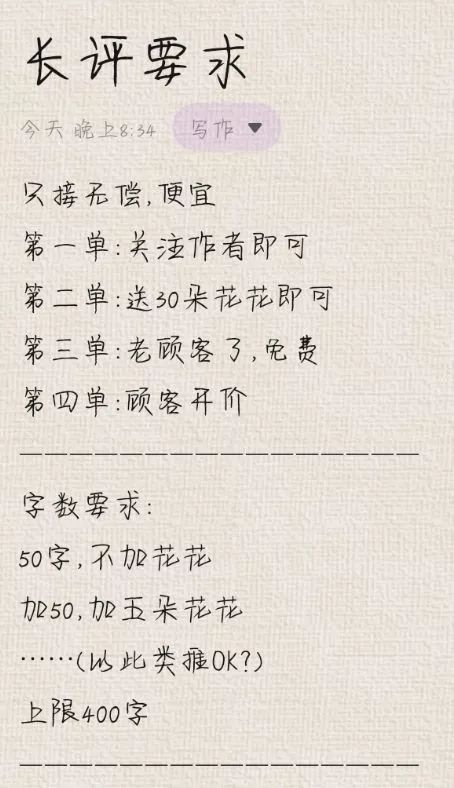 长评要求
今天 晚上8:34 写作
只接无偿,便宜
第一单:关注作者即可
第二单:送30朵花花即可
第三单:老顾客了,免费
第四单:顾客开价
————————————————
字数要求:
50字,不加花花
加50,加五朵花花
……(以此类推OK?)
上限400字
————————————————